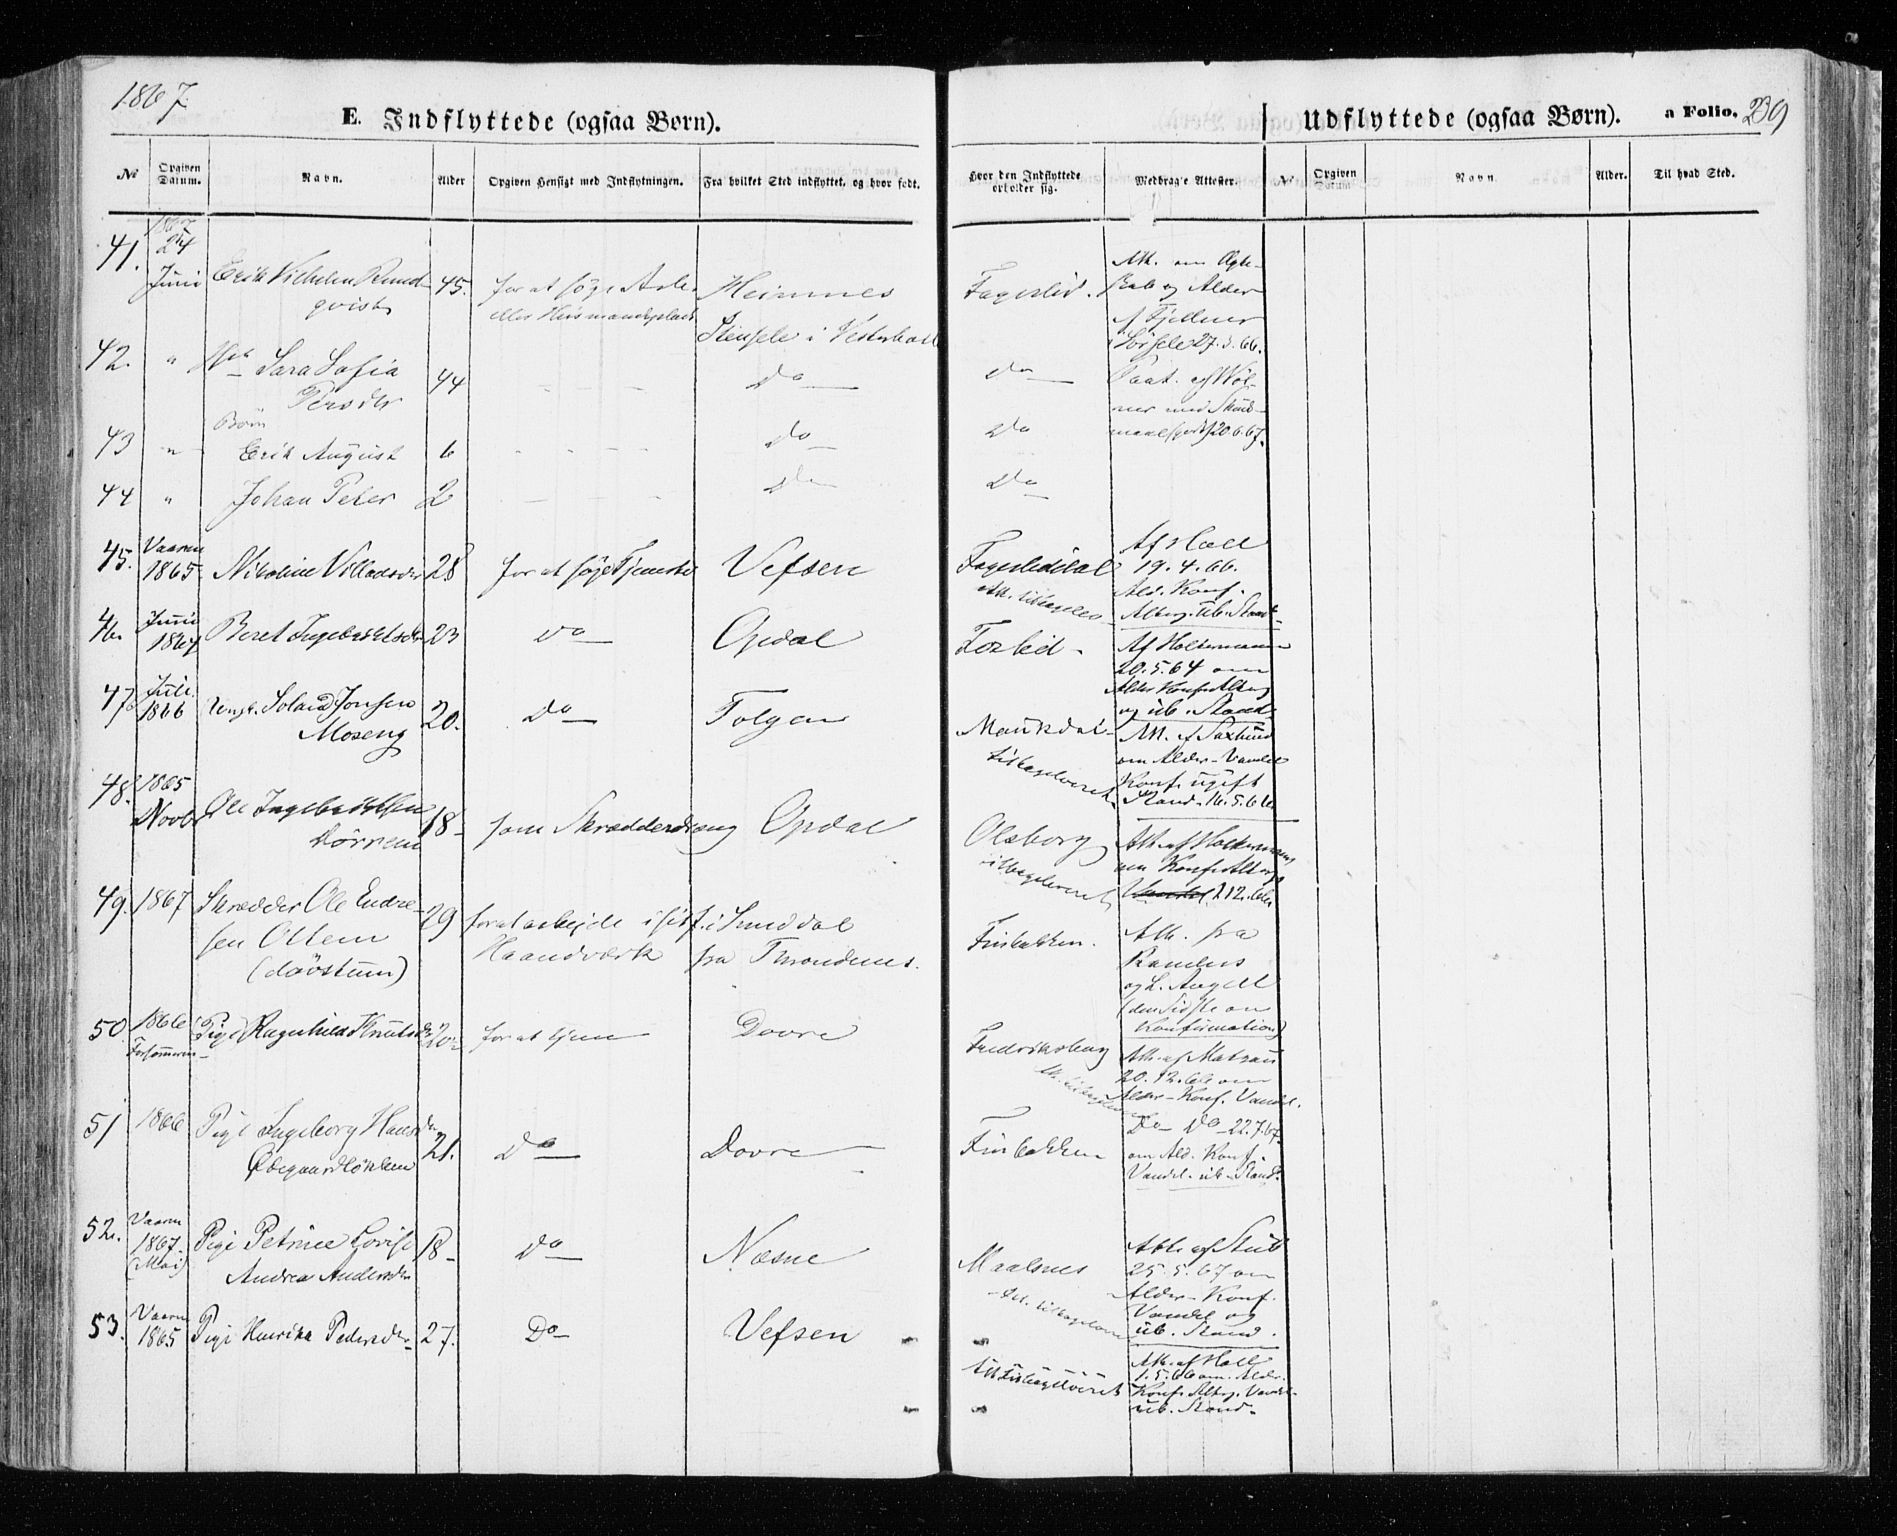 1867
E. Indflyttede (ogsaa Børn).
Udflyttede (ogsaa Børn). a Folio. 239
No Opgiven Datum. Navn. Alder Opgiven Hensigt med Indflytningen. Fra hvilket Sted indflyttet, og hvor født.
Hvor den Indflyttede opholder sig. Medbragte Attester. No Opgiven Datum Navn Alder. Til hvad Sted.
41. 24 Juni Erik Vilhelm Rund-
qvist 45. for at søge Arb.
eller Husmandsplads Hemnes
Stensele i Vesterbott
Fagerlid. Att. om Ægte-
Alder
af Fjellner
i Sorsele 27.3.66.
42. " Sara Sofia
Persdtr 44 - - - Do Do
20.6.67.
Børn
43 " Erik August 6 - - - - Do Do
44 " Johan Peter 2 - - - Do Do
45. Vaaren
1865. Nikoline Villadsdtr 28 for at søge Tjeneste Vefsen Fagerlidal Af Hall
19.4.66.
Ald. Konf.
Alterg. ub. Stand
46. Juni
1867 Beret Ingebrigtsdtr 23 Do Opdal Foslid - Af Holtermann
20.5.64 om
Alder Konf. Alterg
og ub. Stand.
47. Juli.
1866 Ungk. Jonsen
Moseng 20. Do Tolgen Maukdal-
tilbageleveret Att. af
om Alder - Vandel
Konf. ugift
Stand 16.5.66
48. 1865
Novbr Ole Ingebrigtsen
Dørrem 18- som Skrædderdreng Opdal Olsborg
tilbageleveret Att. af Holtermann
om Konf. Alterg
2 12.66.
49. 1867 Skrædder Ole Endre-
sen Ottem
(døvstum) 29 for at arbejde i sit
Haandværk f. i Sunddal
fra Throndenes. Finbakken. Att. fra
Randers
og L. Angell
(den Sidste om
Konfirmation)
50. 1866
Forsommeren Pige Ragnhild Knutsdtr 20- for at tjene Dovre Fredriksberg Att. af
20.12.66 om
Alder - Konf. Vandel.
51 1866 Pige Ingeborg Hansdtr
Øvregaardløkken 21. Do Dovre Finbakken Do Do 22.7.67.
om Ald. Konf.
Vandel. ub. Stand.
52. Vaaren
1867.
(Mai) Pige Petrine Lovise
Andrea Andersdtr 18- Do Næsne Maalsnes
Att. tilbagelev. Att. af
25.5.67 om
Alder - Konf.
Vandel og
ub. Stand.
53. Vaaren
1865 Pige Henrika Pedersdtr 27. Do Vefsen Att. tilbageleveret Att. af Hall
1.5.66 om Alder.
Konf. Alterg. Vandel-
ub. Stand.